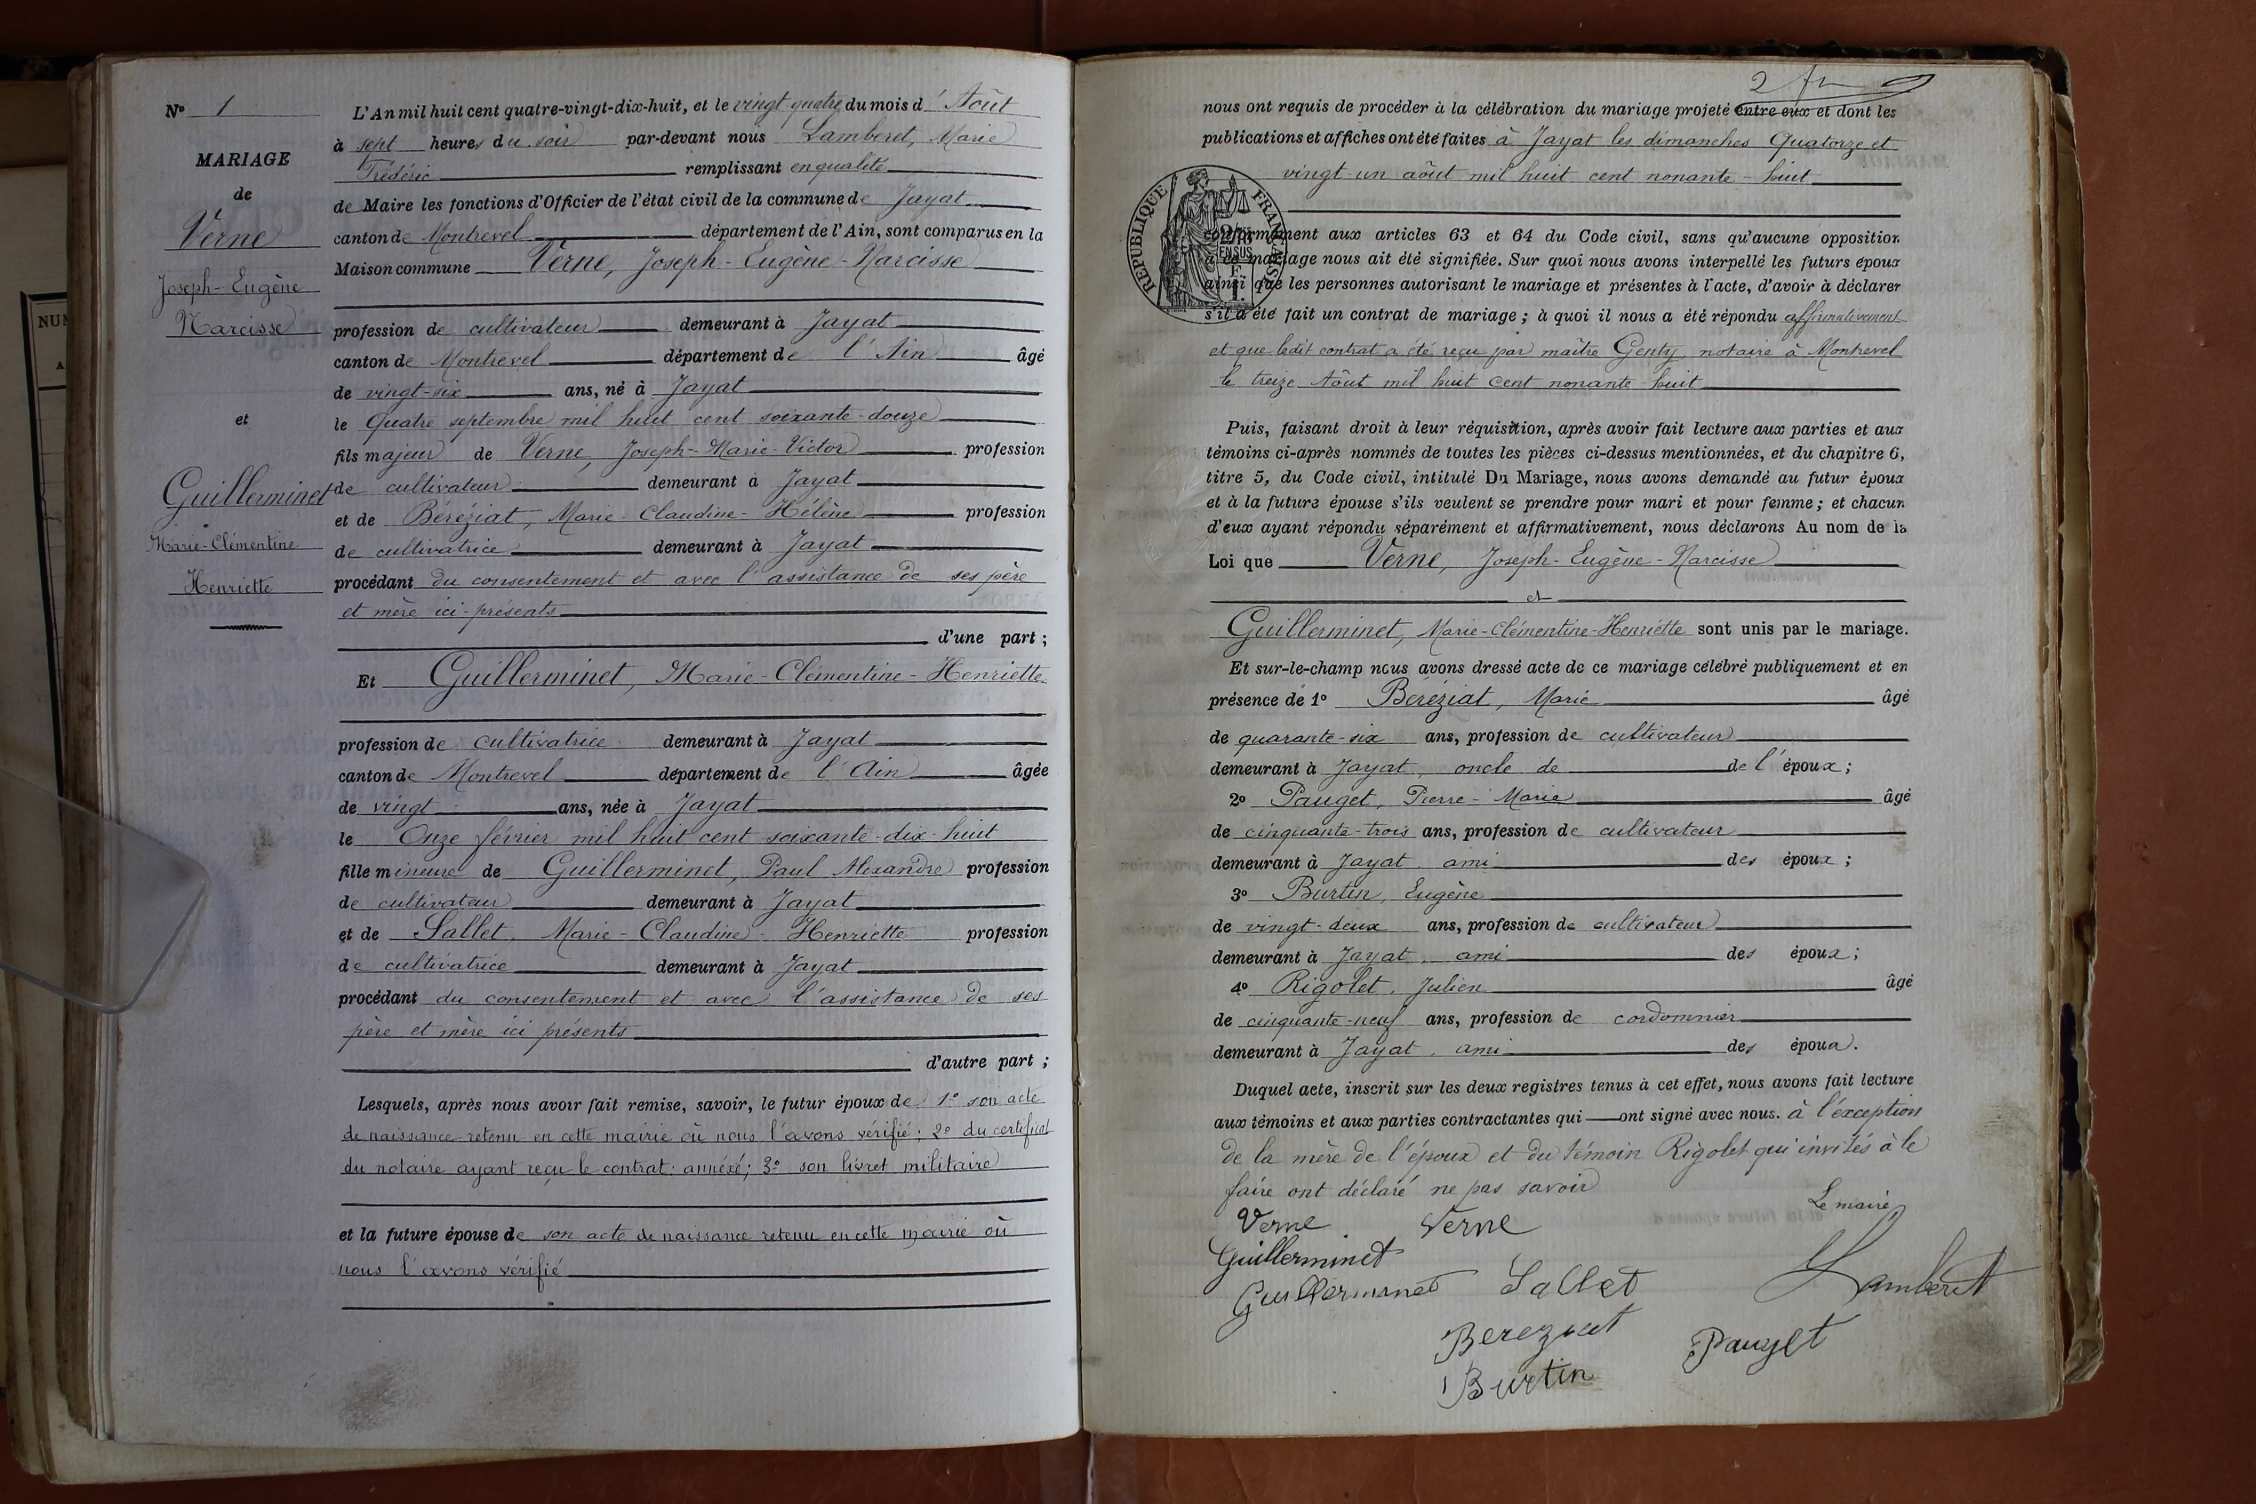 N° 1
MARIAGE
de
Verne
Joseph-Eugène
Narcisse
et
Guillerminet
Marie-Clémentine
Henriette
L'An mil huit cent quatre-vingt-dix-huit, et le vingt-quatre du mois d'Août
à sept heures du soir par-devant nous Lamberet, Marie
Frédéric remplissant en qualité
de Maire les fonctions d'Officier de l'état civil de la commune de Jayat
canton de Montrevel département de l'Ain, sont comparus en la
Maison commune Verne, Joseph-Eugène-Narcisse
profession de cultivateur demeurant à Jayat
canton de Montrevel département de l'Ain âgé
de vingt-six ans, né à Jayat
le Quatre septembre mil huit cent soixante-douze
fils majeur de Verne, Joseph-Marie-Victor profession
de cultivateur demeurant à Jayat
et de Béréziat, Marie-Claudine-Hélène profession
de cultivatrice demeurant à Jayat
procédant du consentement et avec l'assistance de ses père
et mère ici présents
d'une part ;
Et Guillerminet, Marie-Clémentine-Henriette
profession de cultivatrice demeurant à Jayat
canton de Montrevel département de l'Ain âgée
de vingt ans, née à Jayat
le Onze février mil huit cent soixante-dix-huit
fille mineure de Guillerminet, Paul Alexandre profession
de cultivateur demeurant à Jayat
et de Sallet, Marie-Claudine-Henriette profession
de cultivatrice demeurant à Jayat
procédant du consentement et avec l'assistance de ses
père et mère ici présents
d'autre part ;
Lesquels, après nous avoir fait remise, savoir, le futur époux de 1° son acte
de naissance retenu en cette mairie où nous l'avons vérifié ; 2° du certificat
du notaire ayant reçu le contrat : annéxé ; 3° son livret militaire
et la future épouse de son acte de naissance retenu en cette mairie où
nous l'avons vérifié
nous ont requis de procéder à la célébration du mariage projeté entre eux et dont les
publications et affiches ont été faites à Jayat les dimanches Quatorze et
vingt-un août mil huit cent nonante-huit
RÉPUBLIQUE FRANÇAISE
2/10es
EN SUS
F.
1.
conformément aux articles 63 et 64 du Code civil, sans qu'aucune opposition
à ce mariage nous ait été signifiée. Sur quoi nous avons interpellé les futurs époux
ainsi que les personnes autorisant le mariage et présentes à l'acte, d'avoir à déclarer
s'il a été fait un contrat de mariage ; à quoi il nous a été répondu affirmativement
et que ledit contrat a été reçu par maître Genty, notaire à Montrevel
le treize Août mil huit cent nonante-huit
Puis, faisant droit à leur réquisition, après avoir fait lecture aux parties et aux
témoins ci-après nommés de toutes les pièces ci-dessus mentionnées, et du chapitre 6,
titre 5, du Code civil, intitulé Du Mariage, nous avons demandé au futur époux
et à la future épouse s'ils veulent se prendre pour mari et pour femme ; et chacun
d'eux ayant répondu séparément et affirmativement, nous déclarons Au nom de la
Loi que Verne, Joseph-Eugène-Narcisse
et
Guillerminet, Marie-Clémentine-Henriette sont unis par le mariage.
Et sur-le-champ nous avons dressé acte de ce mariage célébré publiquement et en
présence de 1° Béréziat, Marie âgé
de quarante-six ans, profession de cultivateur
demeurant à Jayat, oncle de de l'époux ;
2° Pauget, Pierre-Marie âgé
de cinquante-trois ans, profession de cultivateur
demeurant à Jayat, ami des époux ;
3° Burtin, Eugène
de vingt-deux ans, profession de cultivateur
demeurant à Jayat, ami des époux ;
4° Rigolet, Julien âgé
de cinquante-neuf ans, profession de cordonnier
demeurant à Jayat, ami des époux.
Duquel acte, inscrit sur les deux registres tenus à cet effet, nous avons fait lecture
aux témoins et aux parties contractantes qui ont signé avec nous. à l'éxception
de la mère de l'époux et du témoin Rigolet qui invités à le
faire ont déclaré ne pas savoir
Le maire
Verne Verne
Guillerminet
Guillerminet Sallet Lamberet
Bereziat Pauget
Burtin